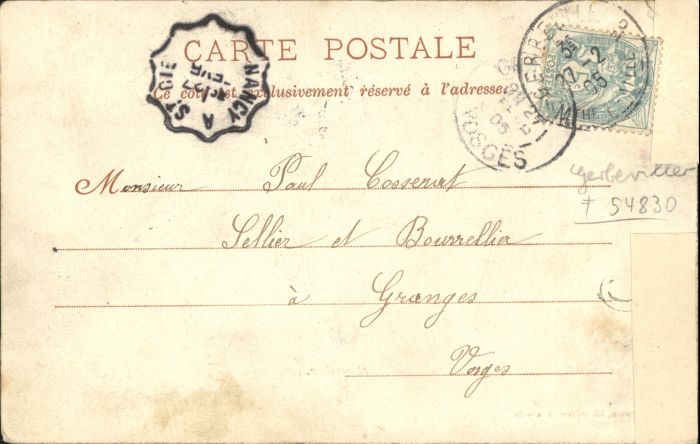 CARTE POSTALE
Ce côté est exclusivement réservé à l'adresse
NANCY A ST DIE
27
FEVR
GERBEVILLER
27-2
05
VOSGES
05
gerbeviller
† 54830
Monsieur Paul Cossenat
Sellier et Bourrellier
à Granges
Vosges